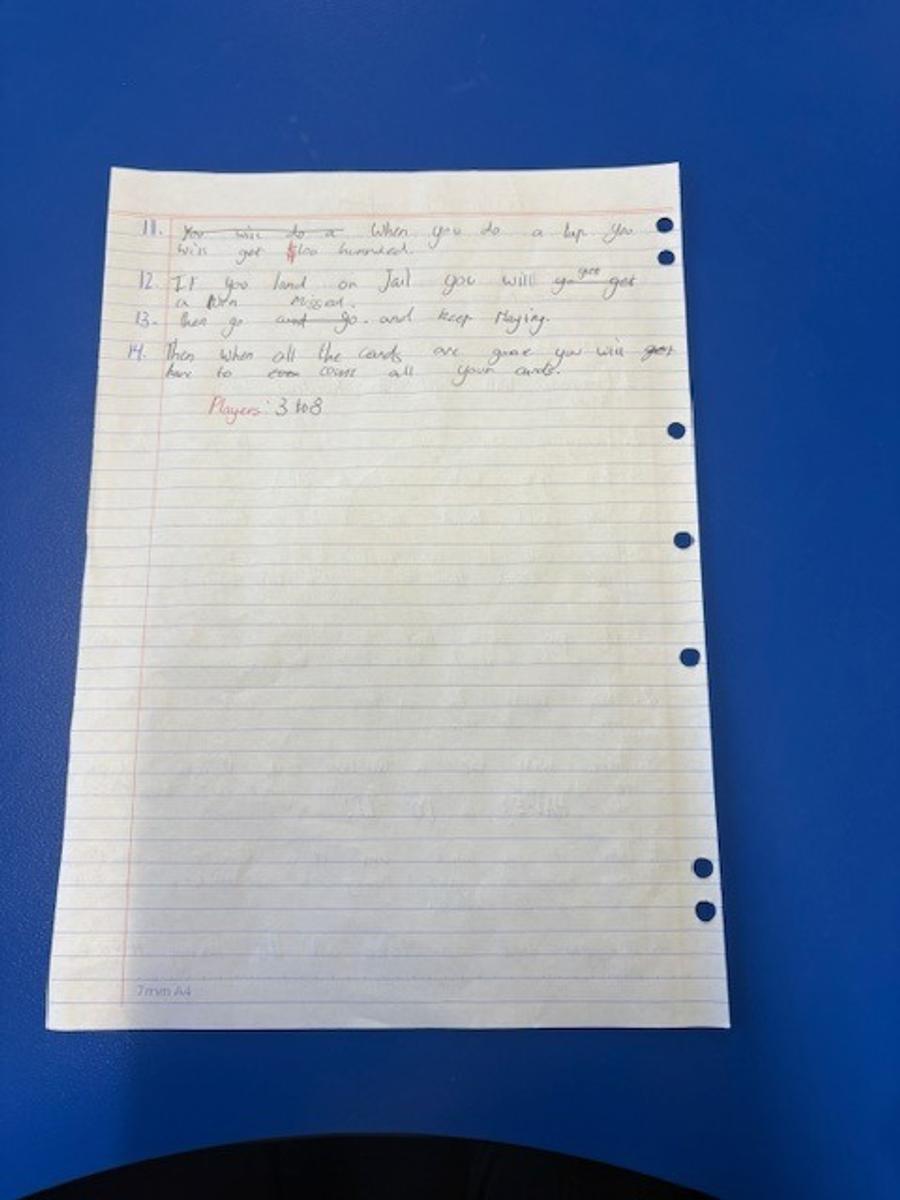 11. You will do a When you do a lap you
will get $100 hunnded.
12. If you land on Jail you will get get
a turn missed.
13. then go and go. and keep Playing.
14. Then when all the cards are gone you will get
have to count all your cards.
Players: 3 to 8
7mm A4